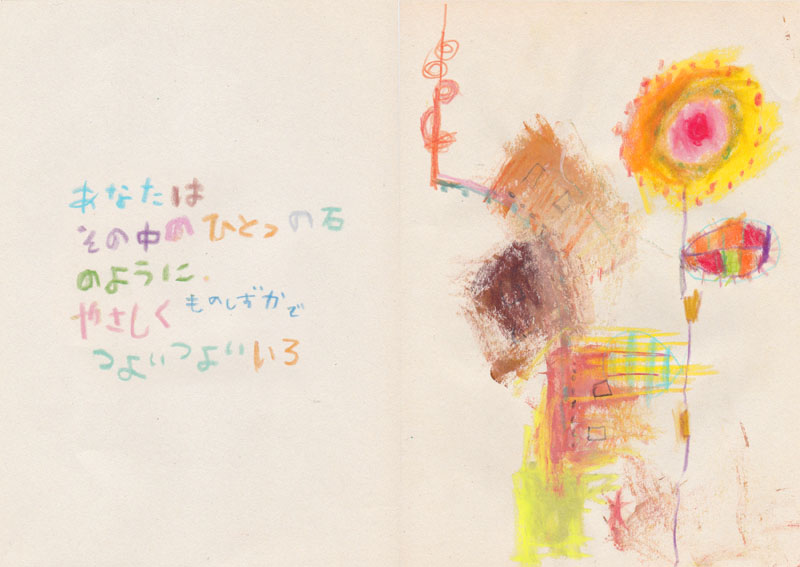 あなたは
その中のひとつの石
のように.
やさしくものしずかで
つよいつよいいろ